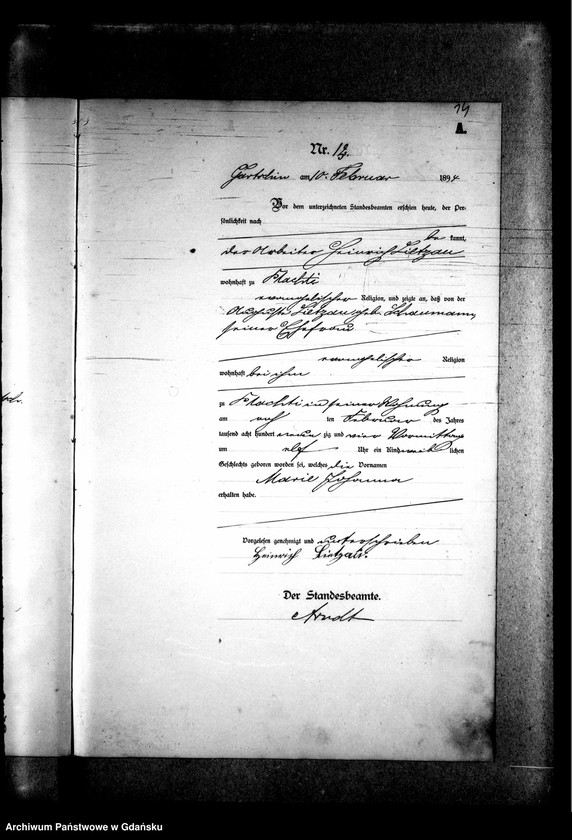 14
A.
Nr. 14.
am 10. Februar 1894
Vor dem unterzeichneten Standesbeamten erschien heute, der Per-
sönlichkeit nach
be kannt,
der Arbeiter Heinrich Lietzau
wohnhaft zu
evangelischer Religion, und zeigte an, daß von der
Auguste Lietzau geb.
seiner Ehefrau
evangelischer Religion
wohnhaft bei ihm
zu in seiner Wohnung
am ten Februar des Jahres
tausend acht hundert neun zig und vier Vormittags
um elf Uhr ein Kind weib lichen
Geschlechts geboren worden sei, welches die Vornamen
Marie Johanna
erhalten habe.
Vorgelesen genehmigt und unterschrieben
Heinrich Lietzau.
Der Standesbeamte.
Arndt
Archiwum Państwowe w Gdańsku